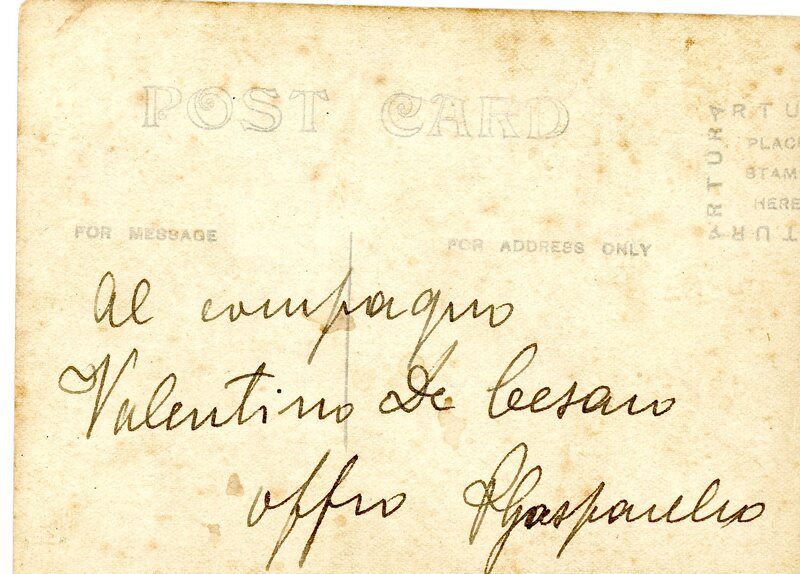 POST CARD
ARTU
ARTURA
PLACE
STAM
HERE
RUTA
FOR MESSAGE
FOR ADDRESS ONLY
Al compagno
Valentino De Cesaro
offro